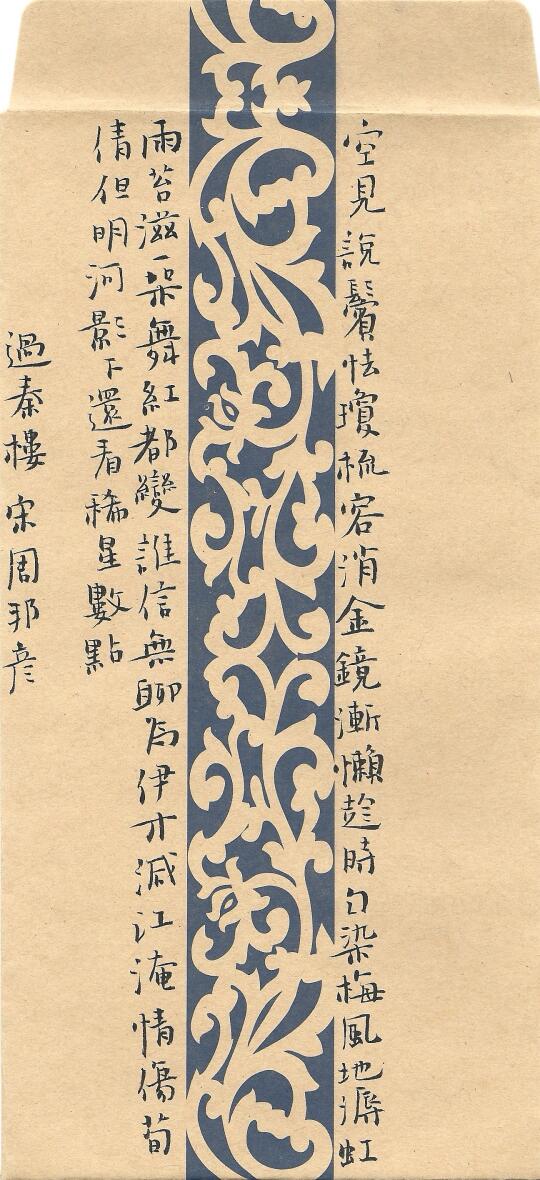 空見說鬢怯瓊梳容消金鏡漸懶趁時勻染梅風地溽虹
雨苔滋一架舞紅都變誰信無聊為伊才減江淹情傷荀
倩但明河影下還看稀星數點
過秦樓 宋周邦彥